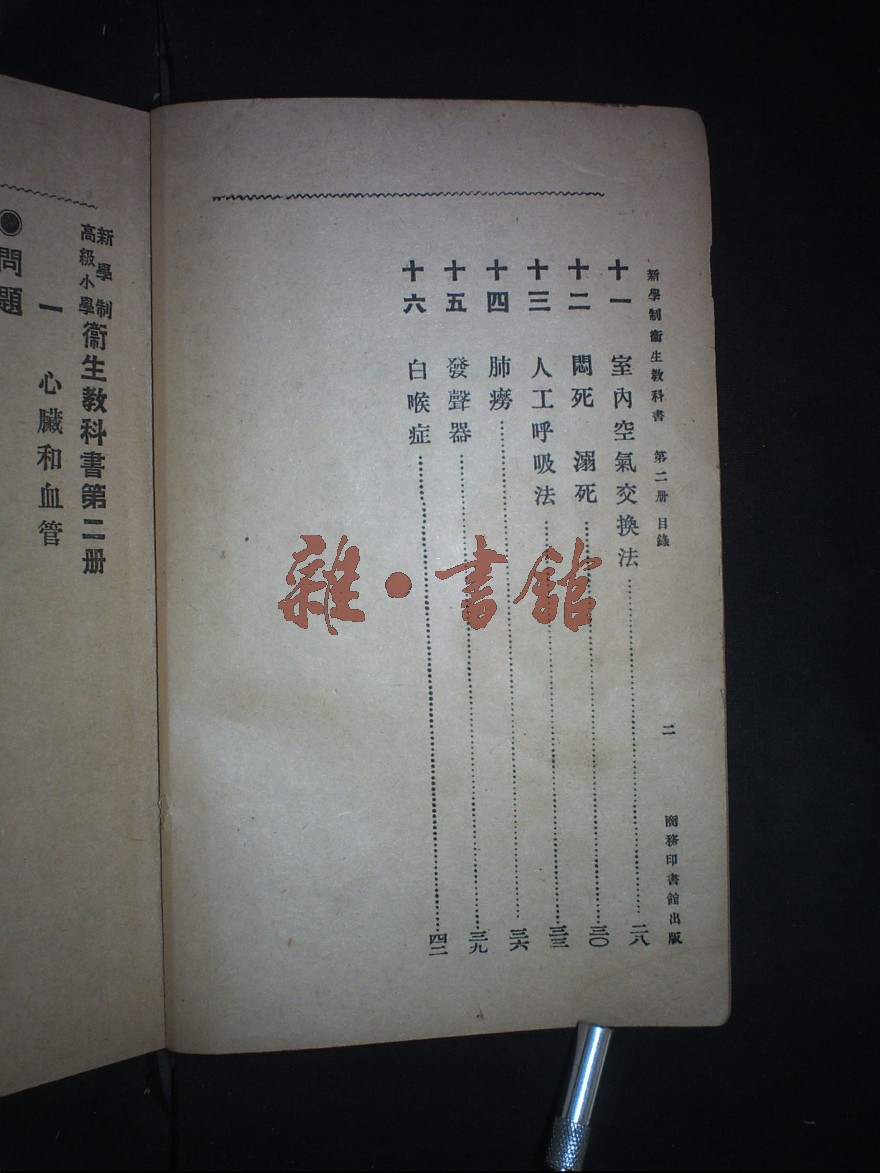 新學制衞生教科書 第二册 目錄 二 商務印書館出版
十一 室內空氣交換法 二八
十二 悶死 溺死 三〇
十三 人工呼吸法 三三
十四 肺癆 三六
十五 發聲器 三九
十六 白喉症 四二
新學制
高級小學
衞生教科書第二册
一 心臟和血管
●問題
雜·書館